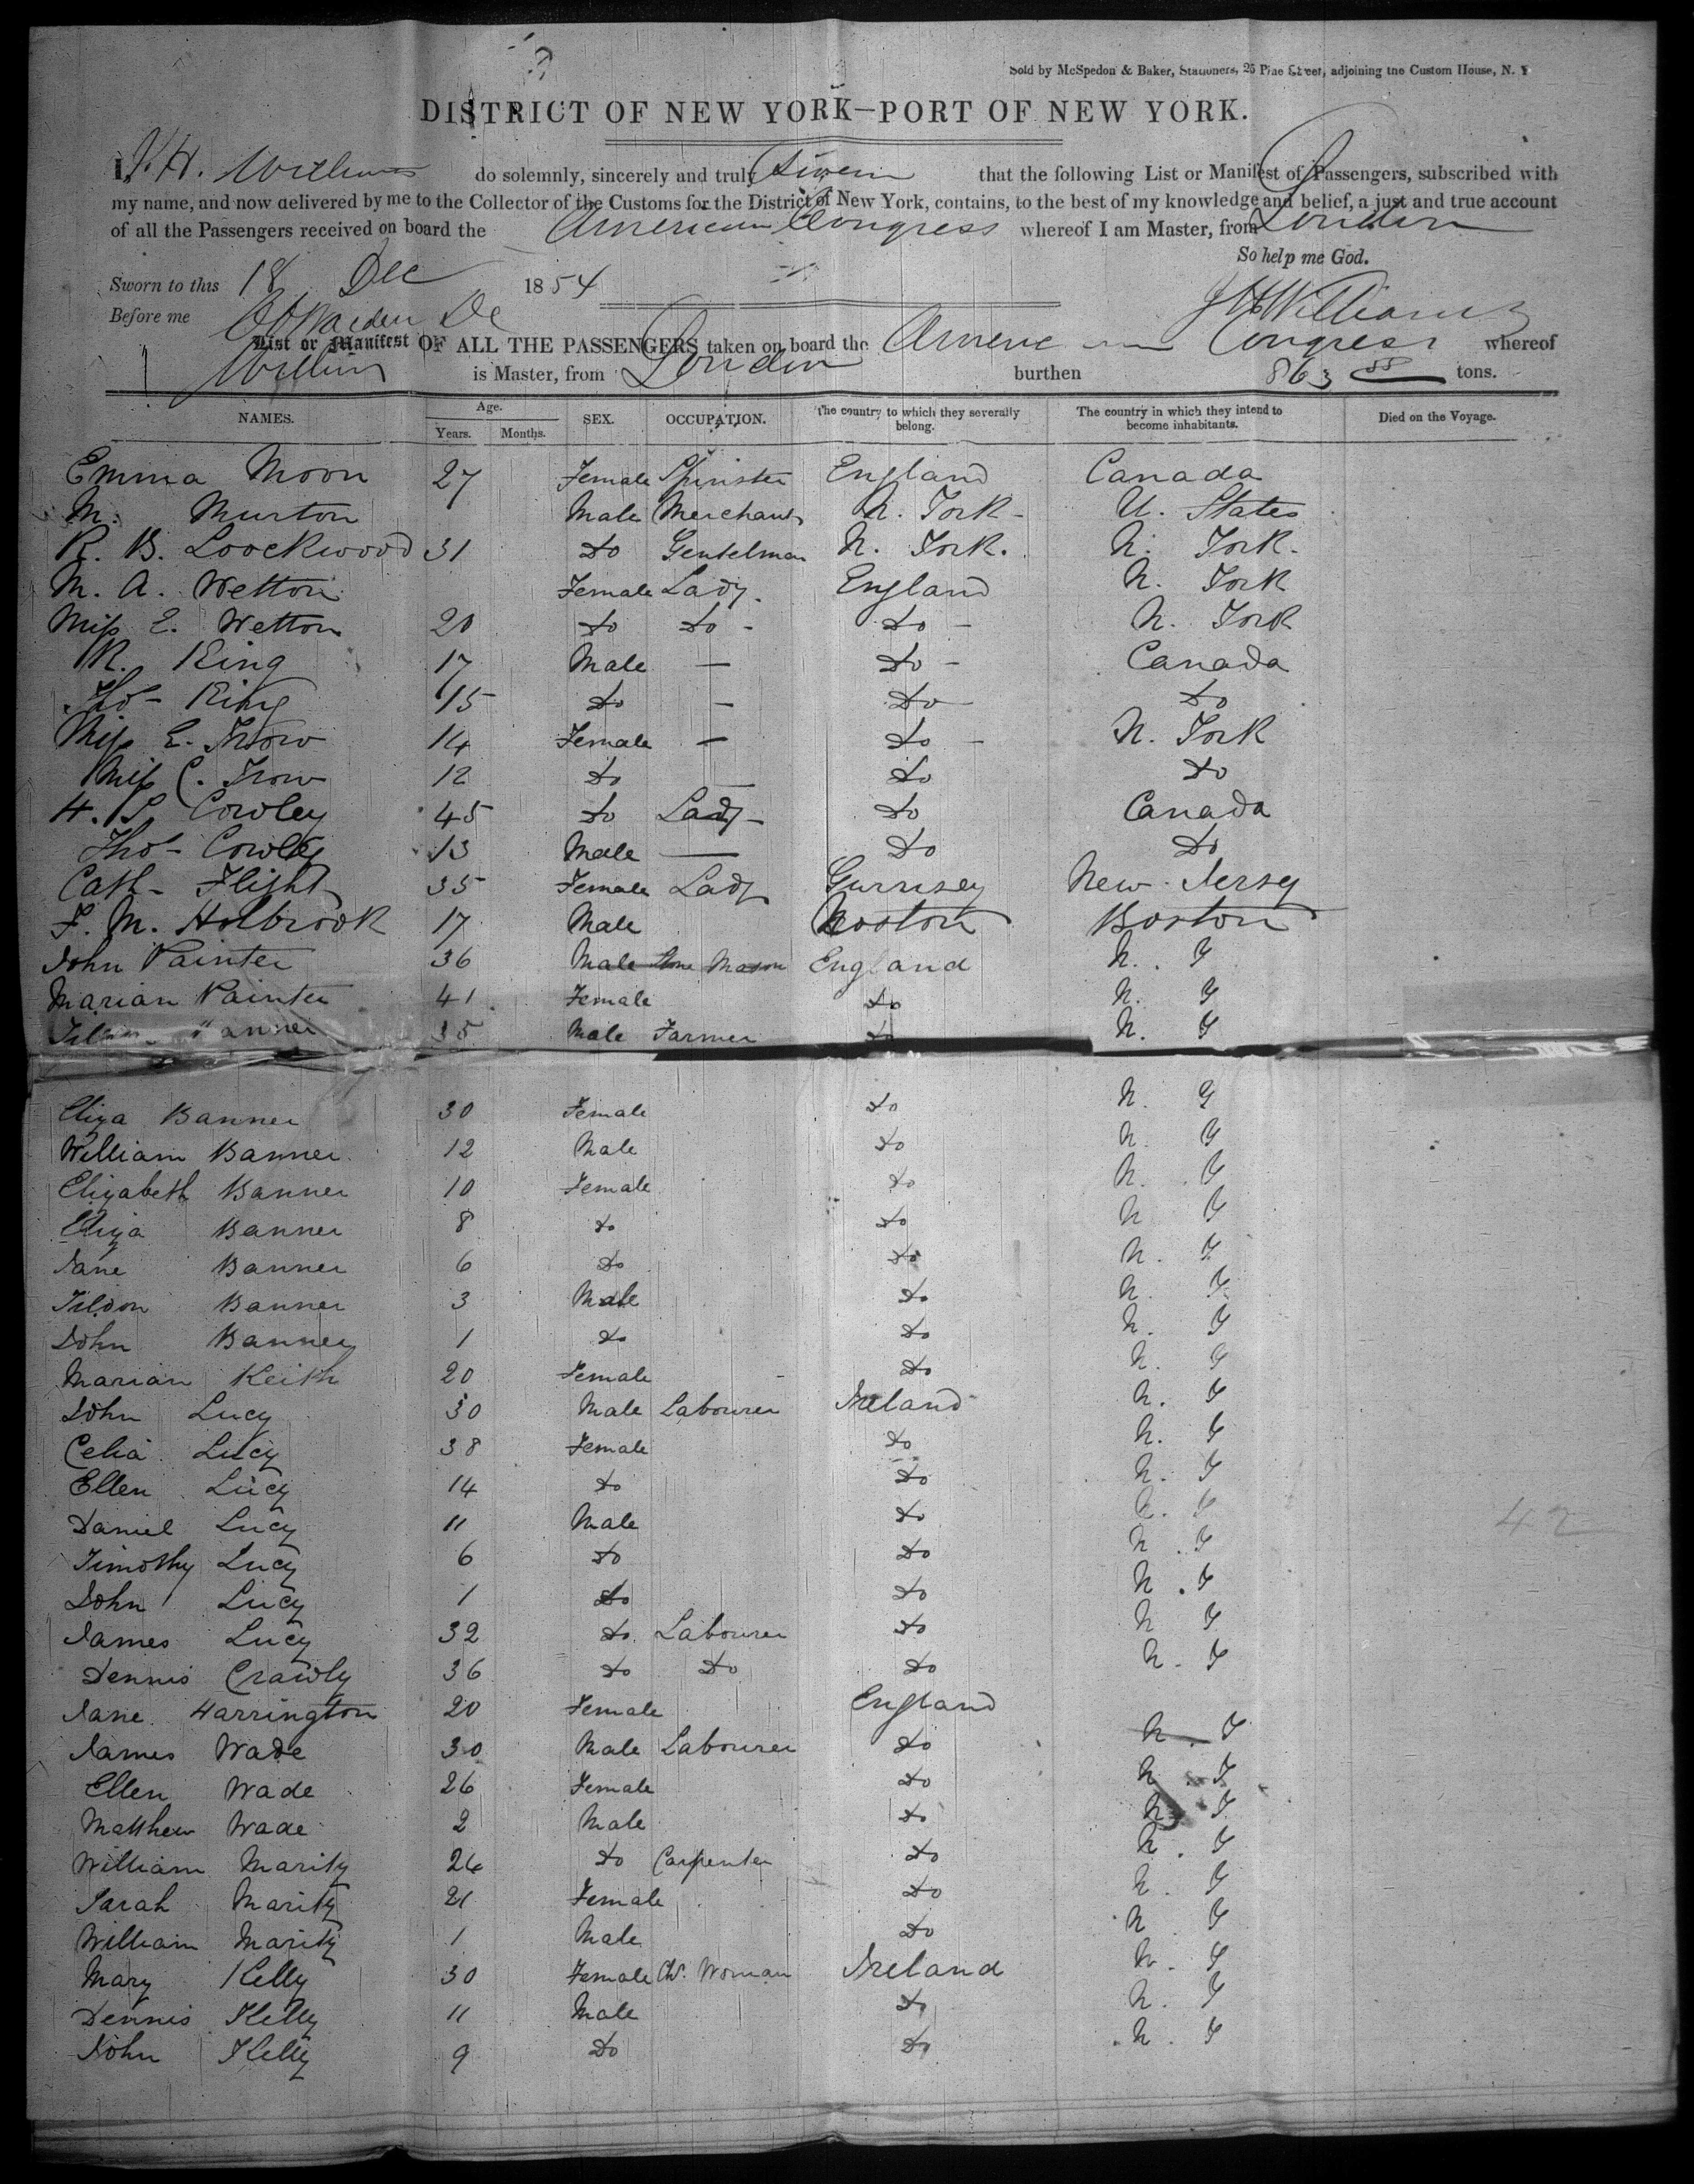 Sold by McSpedon & Baker, Stationers, 25 Pine Street, adjoining the Custom House, N. Y
DISTRICT OF NEW YORK—PORT OF NEW YORK.
I, Williams do solemnly, sincerely and truly Swear that the following List or Manifest of Passengers, subscribed with
my name, and now delivered by me to the Collector of the Customs for the District of New York, contains, to the best of my knowledge and belief, a just and true account
of all the Passengers received on board the American Congress whereof I am Master, from London
So help me God.
Sworn to this 18 Dec 1854
Before me
Williams
List or Manifest OF ALL THE PASSENGERS taken on board the American Congress whereof
Williams is Master, from London burthen 863 88 tons.
NAMES. Age. Years. Months. SEX. OCCUPATION. The country to which they severally belong. The country in which they intend to become inhabitants. Died on the Voyage.
Emma Moon 27 Female Spinster England Canada
M. Murton Male Merchant N. York - U. States
R. B. Loockwood 31 Do Gentelman N. York. N. York.
M. A. Wetton Female Lady. England N. York
Miss E. Wetton 20 Do Do - Do - N. York
R. King 17 Male — Do - Canada
Tho- King 15 Do — Do - Do
Miss E. Trow 14 Female — Do - N. York
Miss C. Trow 12 Do — Do Do
H. S. Cowley 45 Do Lady - Do Canada
Tho- Cowley 13 Male — Do Do
Cath- Flight 35 Female Lady Gurnsey New Jersey
F. M. Holbrook 17 Male Boston Boston
John Painter 36 Male Mason England N. Y
Marian Painter 41 Female Do N. Y
Banner 35 Male Farmer Do N. Y
Eliza Banner 30 Female Do N. Y
William Banner 12 Male Do N. Y
Elizabeth Banner 10 Female Do N. Y
Eliza Banner 8 Do Do N Y
Jane Banner 6 Do Do N. Y
Tildon Banner 3 Male Do N. Y
John Banner 1 Do Do N. Y
Marian Keith 20 Female Do N. Y
John Lucy 30 Male Labourer Ireland N. Y
Celia Lucy 38 Female Do N. Y
Ellen Lucy 14 Do Do N. Y
Daniel Lucy 11 Male Do N. Y
Timothy Lucy 6 Do Do N. Y
John Lucy 1 Do Do N. Y
James Lucy 32 Do Labourer Do N Y
Dennis Crawly 36 Do Do Do N. Y
Jane Harrington 20 Female England
James Wade 30 Male Labourer Do N. Y
Ellen Wade 26 Female Do N. Y
Matthew Wade 2 Male Do N. Y
William Marity 24 Do Carpenter Do N. Y
Sarah Marity 21 Female Do N. Y
William Marity 1 Male Do N Y
Mary Kelly 30 Female Woman Ireland N. Y
Dennis Kelly 11 Male Do N. Y
John Kelly 9 Do Do N. Y
42